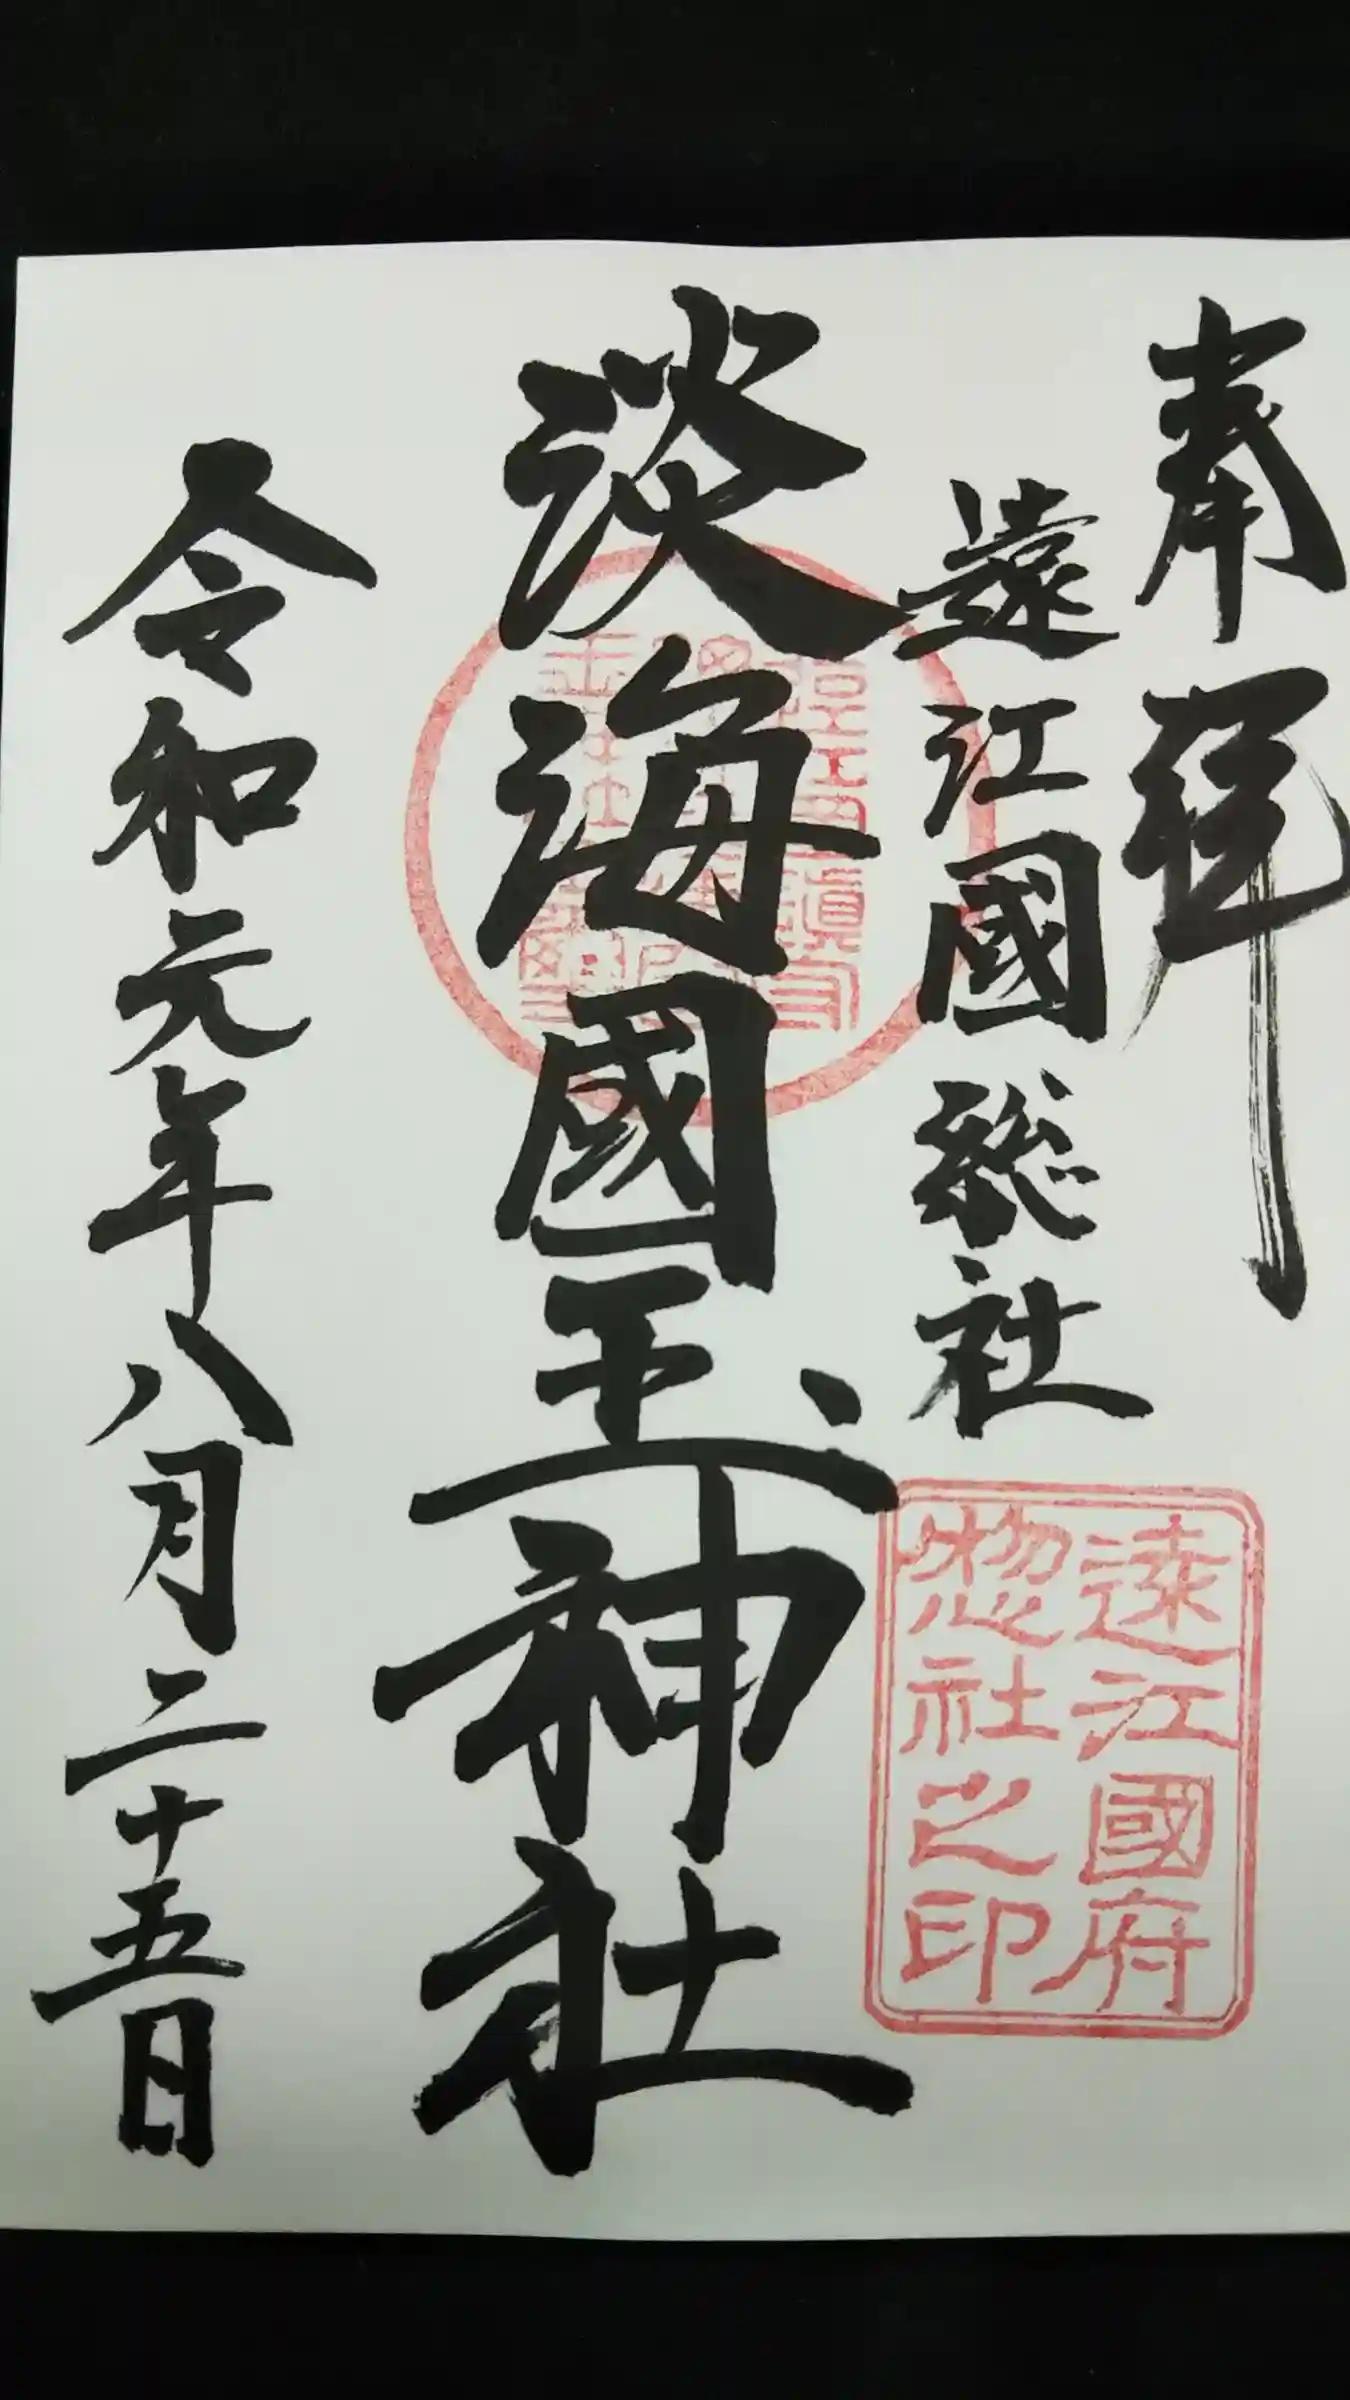 奉拝
遠江國総社
淡海國玉神社
令和元年八月二十五日
遠江國府
惣社之印